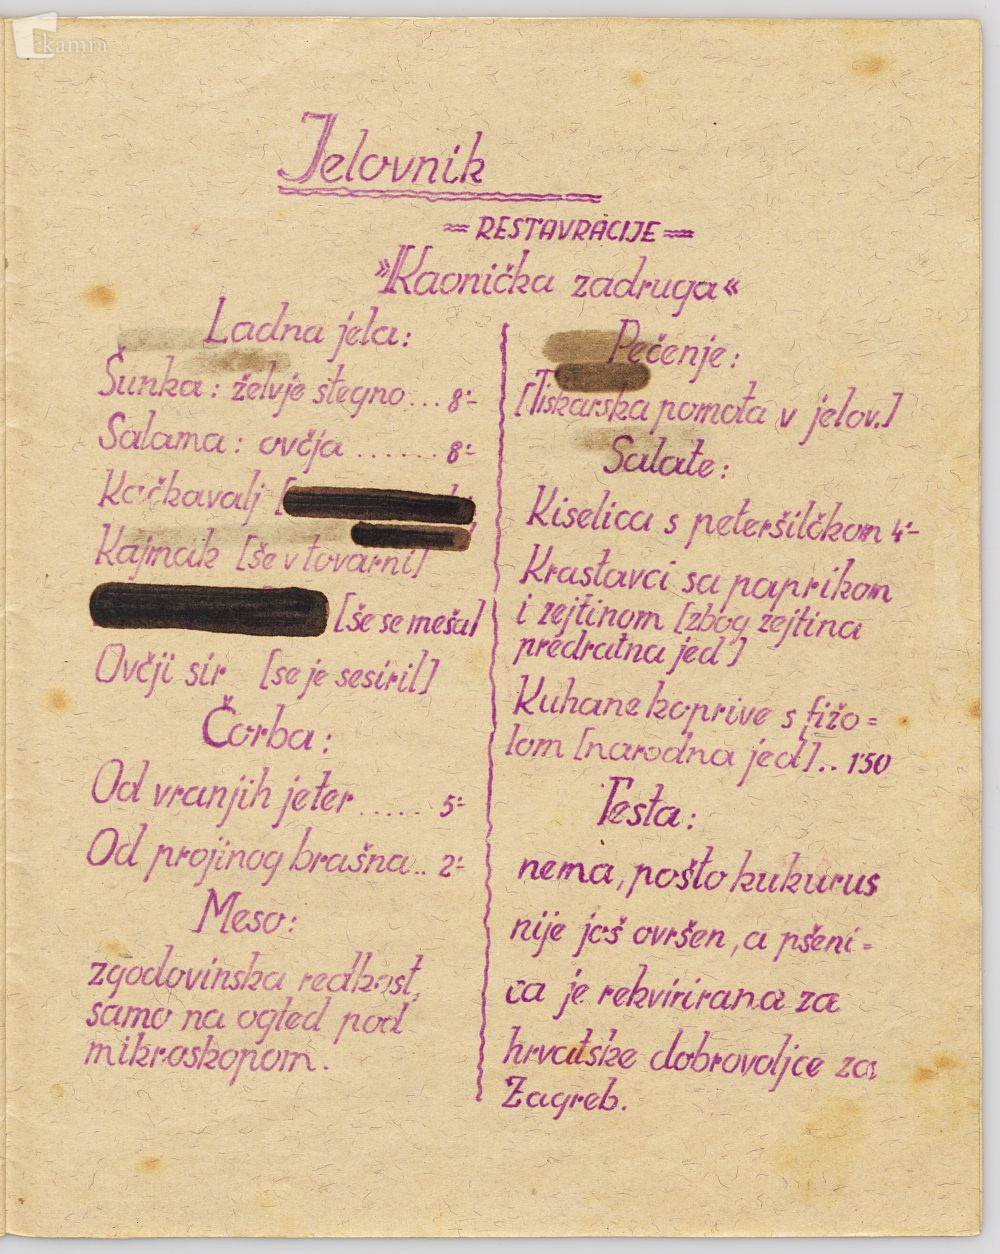 kamra
Jelovnik
= RESTAVRACIJE =
»Kaonička zadruga«
Ladna jela:
Šunka: želvje stegno... 8·-
Salama: ovčja ....... 8·-
Kačkavalj [
Kajmak [še v tovarni]
[še se meša]
Ovčji sir [se je sesiril]
Čorba:
Od vranjih jeter ..... 5·-
Od projinog brašna.. 2·-
Meso:
zgodovinska redkost,
samo na ogled pod
mikroskopom.
Pečenje:
[Tiskarska pomota v jelov.]
Salate:
Kiselica s peteršilčkom 4·-
Krastavci sa paprikom
i zejtinom [zbog zejtina
predratna jed]
Kuhane koprive s fižo=
lom [narodna jed].. 1'50
Testa:
nema, pošto kukurus
nije još ovršen, a pšeni=
ca je rekvirirana za
hrvatske dobrovoljce za
Zagreb.